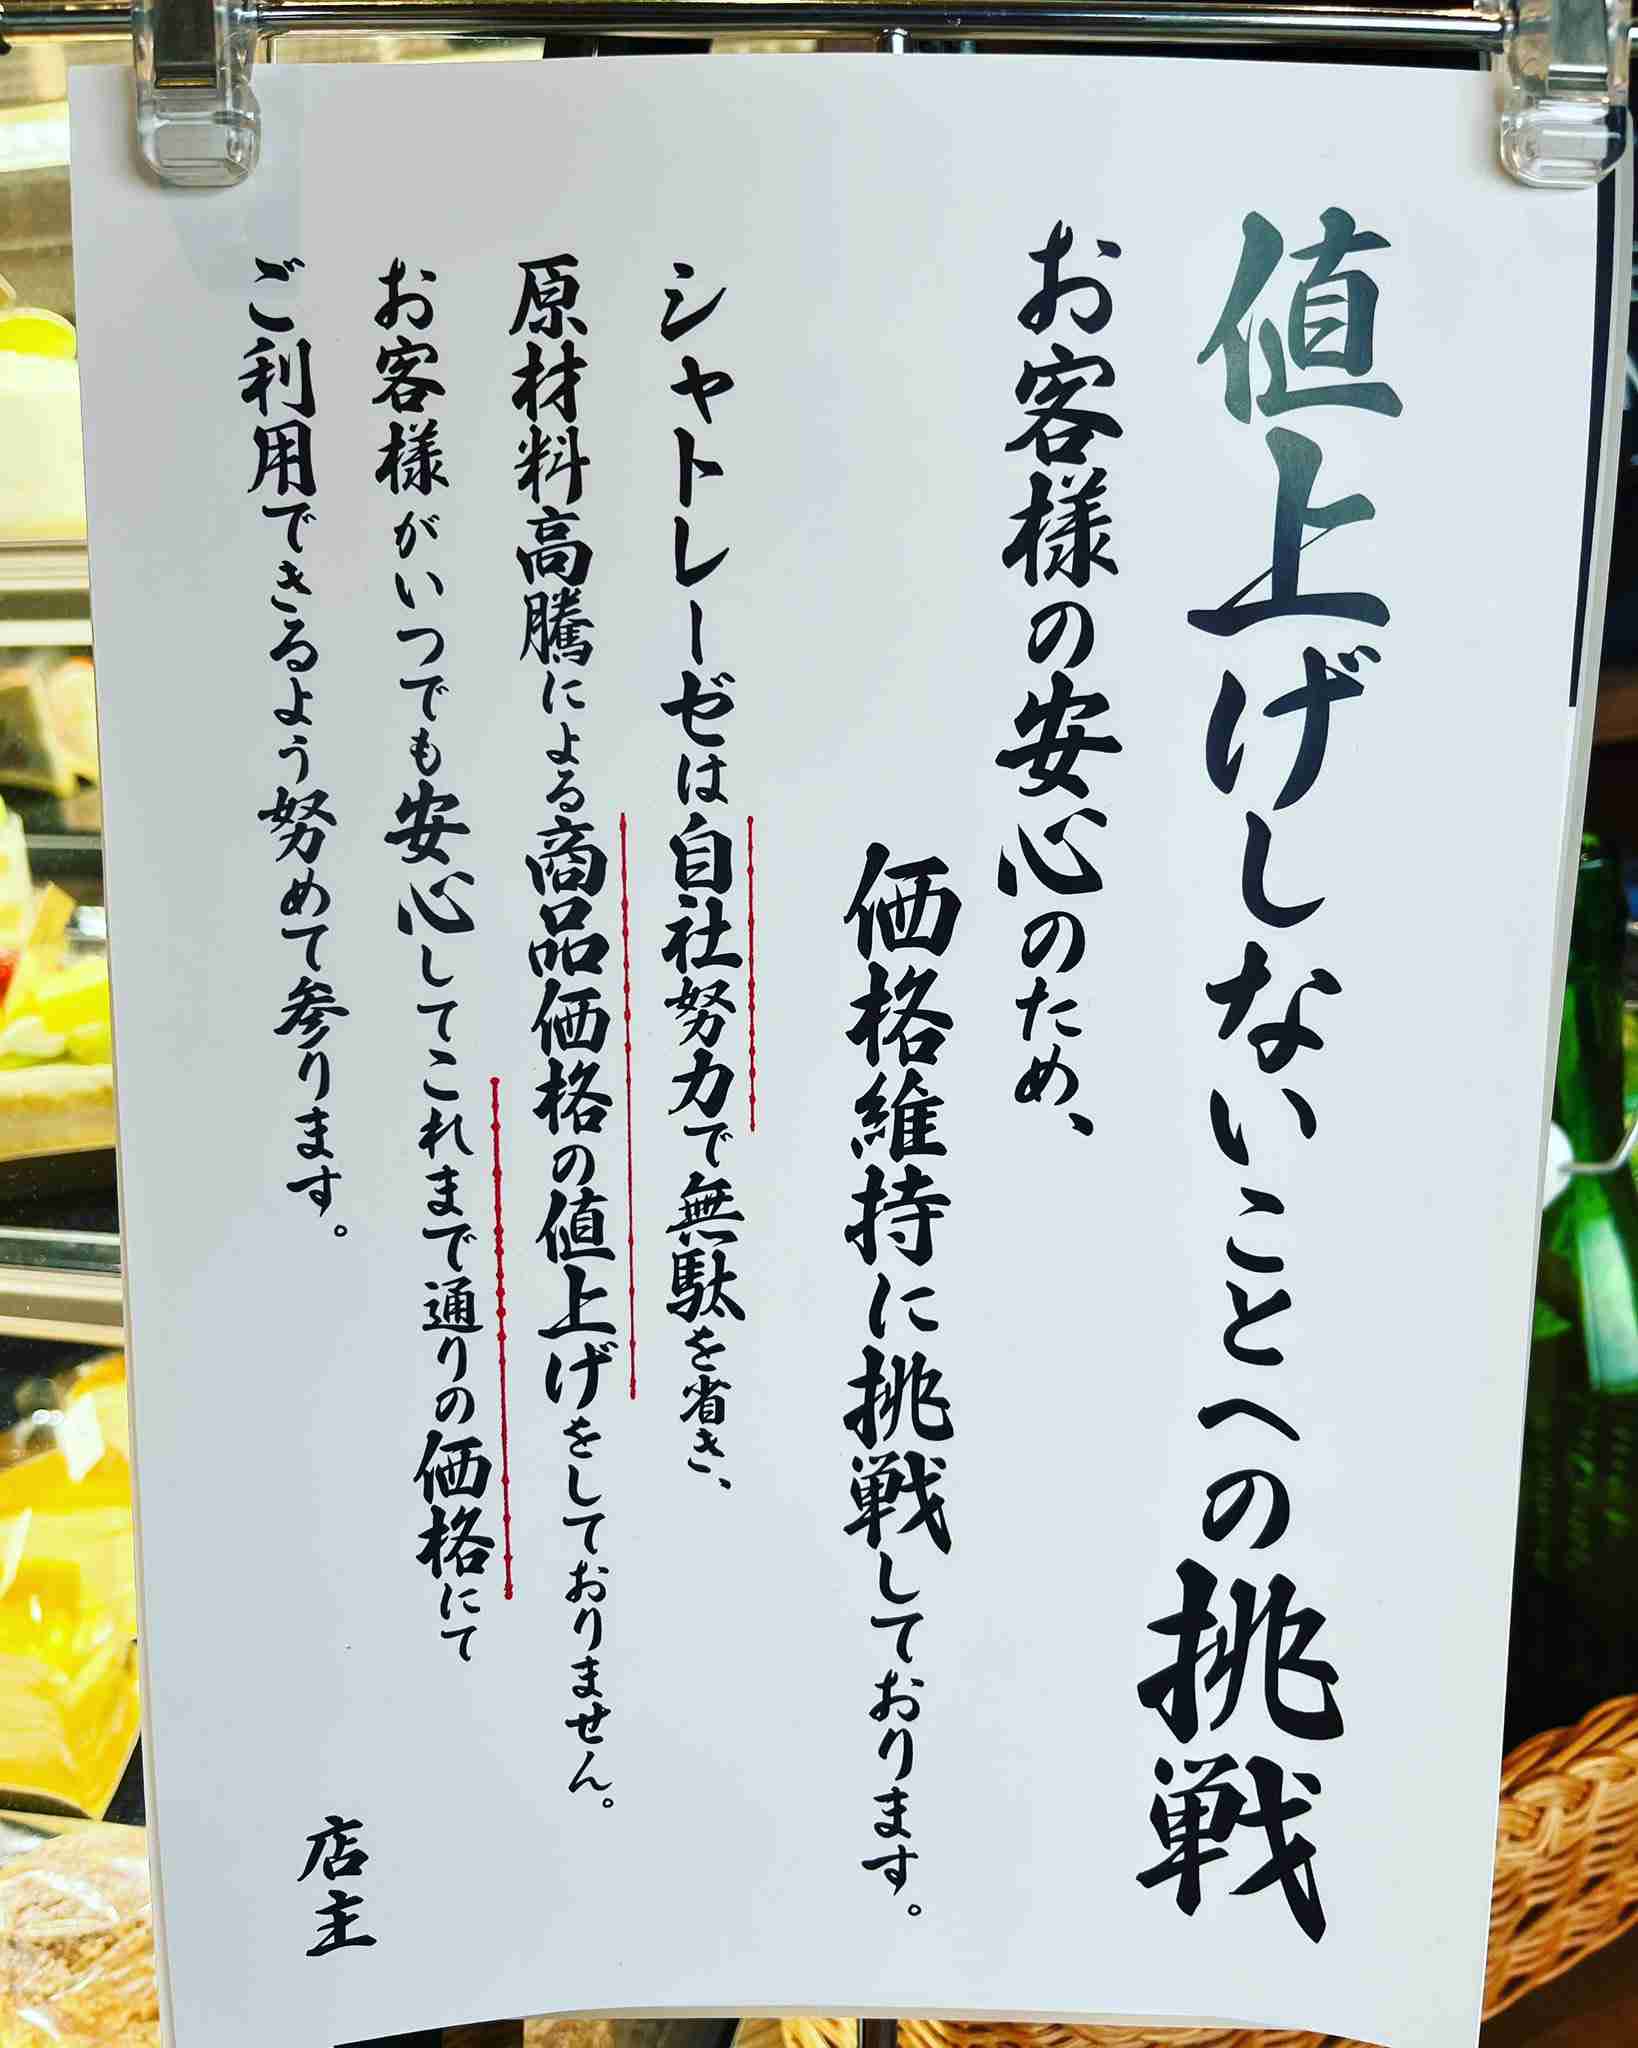 値上げしないことへの挑戦
お客様の安心のため、
価格維持に挑戦しております。
シャトレーゼは自社努力で無駄を省き、
原材料高騰による商品価格の値上げをしておりません。
お客様がいつでも安心してこれまで通りの価格にて
ご利用できるよう努めて参ります。
店主